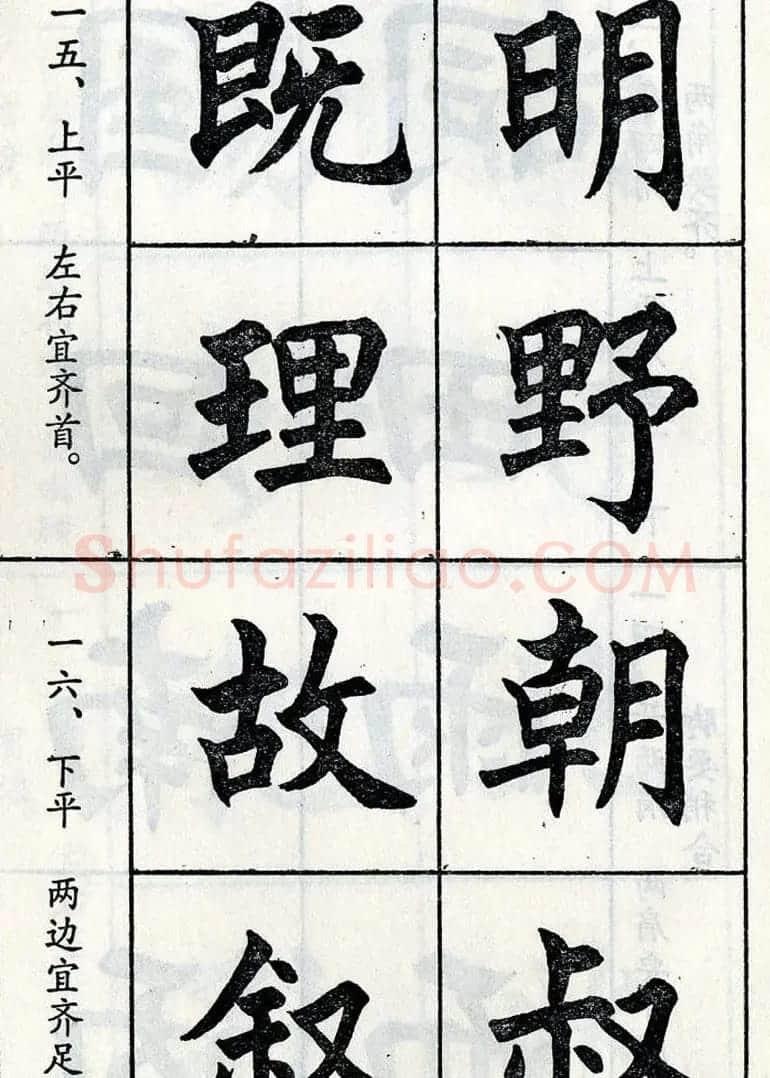 明
野
朝
叔
既
理
故
叙
一五、上平 左右宜齐首。
一六、下平 两边宜齐足
Shufaziliao.COM